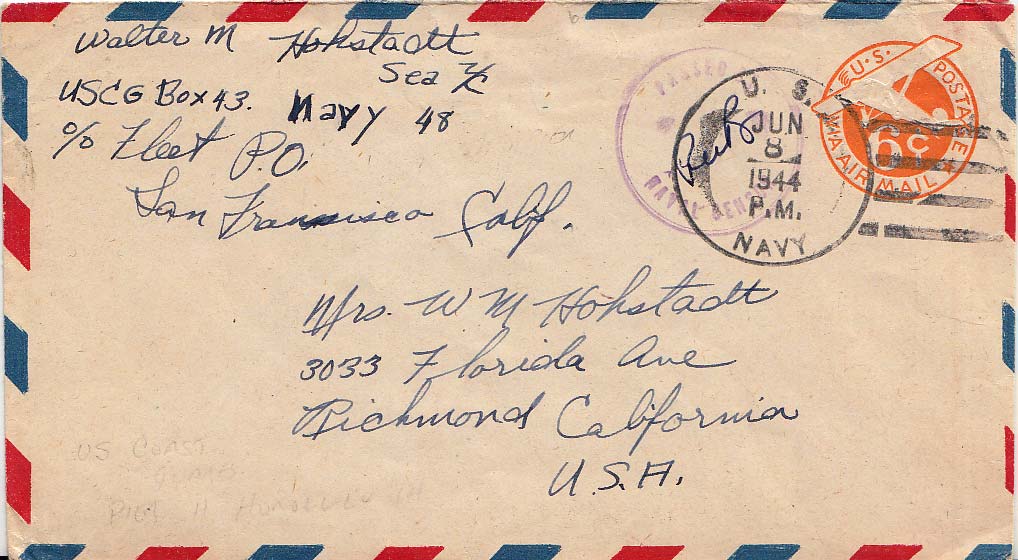 Walter M Hohstadt
Sea 2/C
USCG Box 43. Navy 48
c/o Fleet P.O.
San Fransisco Calif.
PASSED
NAVAL CENSOR
U. S.
JUN
8
1944
P.M.
NAVY
U.S. POSTAGE
6c
VIA AIR MAIL
Mrs. W M Hohstadt
3033 Florida Ave
Richmond California
U.S.A.
US COAST
GUARD
PIER 11 HONOLULU